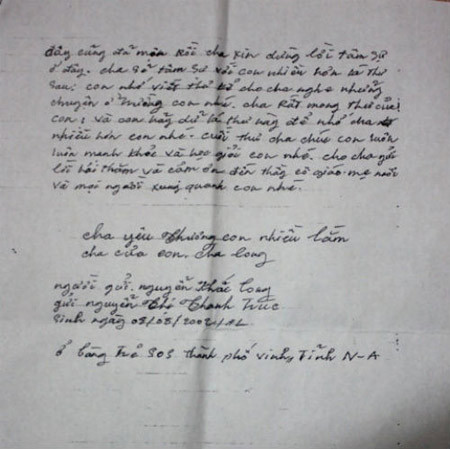 đây cũng đã muộn rồi cha xin dừng lời tâm sự
ở đây. cha sẽ tâm sự với con nhiều hơn lá thư
sau. con nhớ viết thư kể cho cha nghe những
chuyện ở trường con nhé. cha rất mong thư của
con. và con hãy dữ lá thư này để nhớ cha
nhiều hơn con nhé. cuối thư cha chúc con luôn
luôn mạnh khỏe và học giỏi con nhé. cho cha gửi
lời hỏi thăm và cảm ơn đến thầy cô giáo mẹ nuôi
và mọi người xung quanh con nhé.
cha yêu thương con nhiều lắm
cha của con. cha long
người gửi. nguyễn khắc long
gửi nguyễn thị thanh trúc
sinh ngày
ở làng trẻ SOS thành phố vinh, Tỉnh N-A